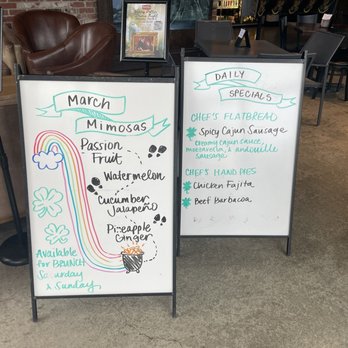 March
Mimosas
Passion
Fruit
Watermelon
Cucumber
Jalapeño
Pineapple
Ginger
Available
for BRUNCH
Saturday
& Sunday
DAILY
SPECIALS
CHEF'S FLATBREAD
Spicy Cajun Sausage
creamy cajun sauce,
mozzarella, & andouille
sausage
CHEF'S HAND PIES
Chicken Fajita
Beef Barbacoa